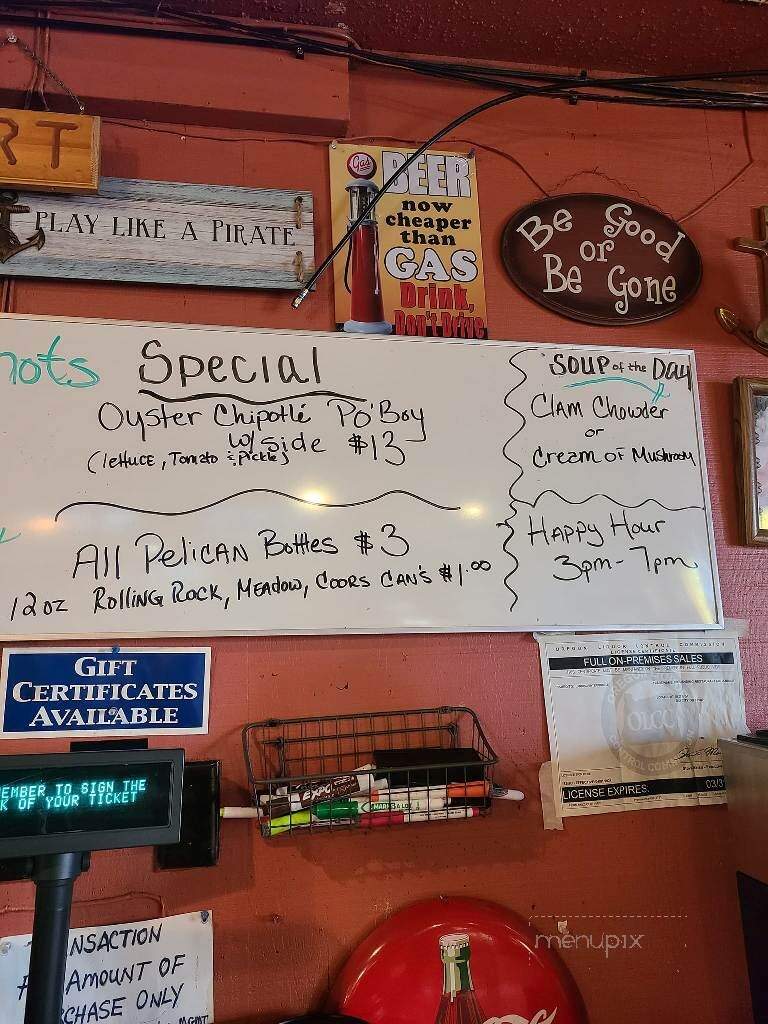 RT
PLAY LIKE A PIRATE
Gas
BEER
now
cheaper
than
GAS
Drink,
Don't Drive
Be Good
or
Be Gone
hots
Special
Oyster Chipotlé Po'Boy
w/ side $13
(lettuce, Tomato & Pickle)
All Pelican Bottles $3
12oz Rolling Rock, Meadow, Coors Can's $1.00
Soup of the Day
Clam Chowder
or
Cream of Mushroom
Happy Hour
3pm - 7pm
GIFT
CERTIFICATES
AVAILABLE
EMBER TO SIGN THE
K OF YOUR TICKET
OREGON LIQUOR CONTROL COMMISSION
LICENSE CERTIFICATE
FULL ON-PREMISES SALES
OLCC
CONTROL COM
LICENSE EXPIRES:
03/3
EXPO
NSACTION
AMOUNT OF
CHASE ONLY
MGMT
menupix